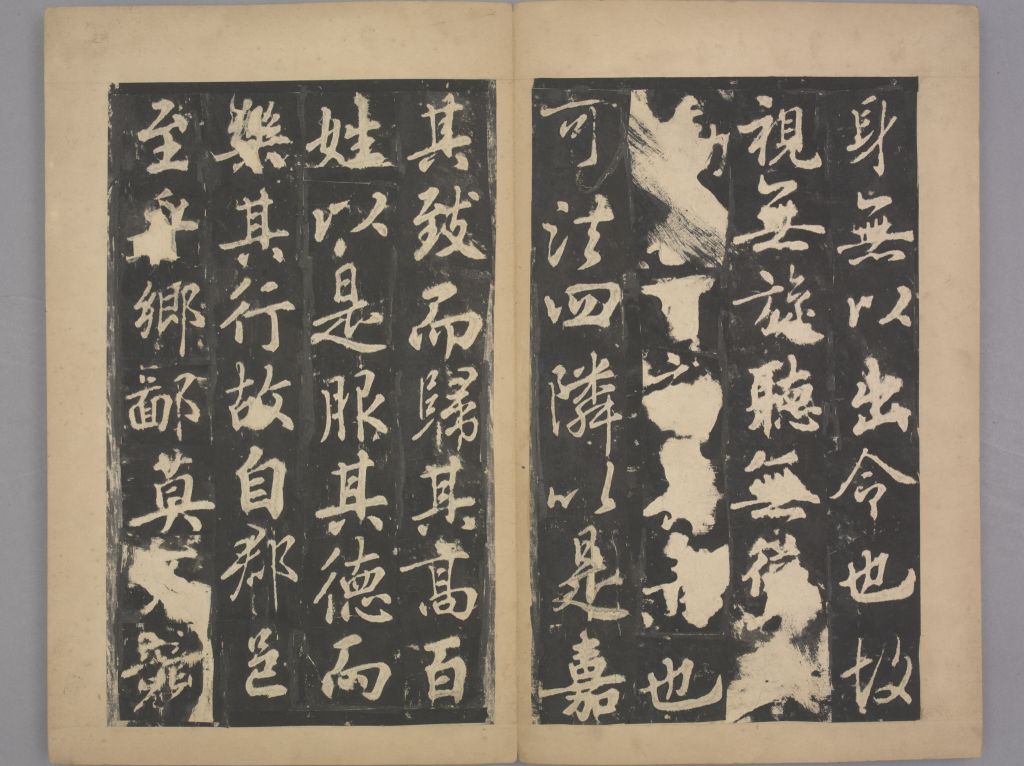 身無以出令也故
視無旋聽無
也
可法四隣以是嘉
其致而歸其高百
姓以是服其德而
樂其行故自郡邑
至乎鄉鄙莫不